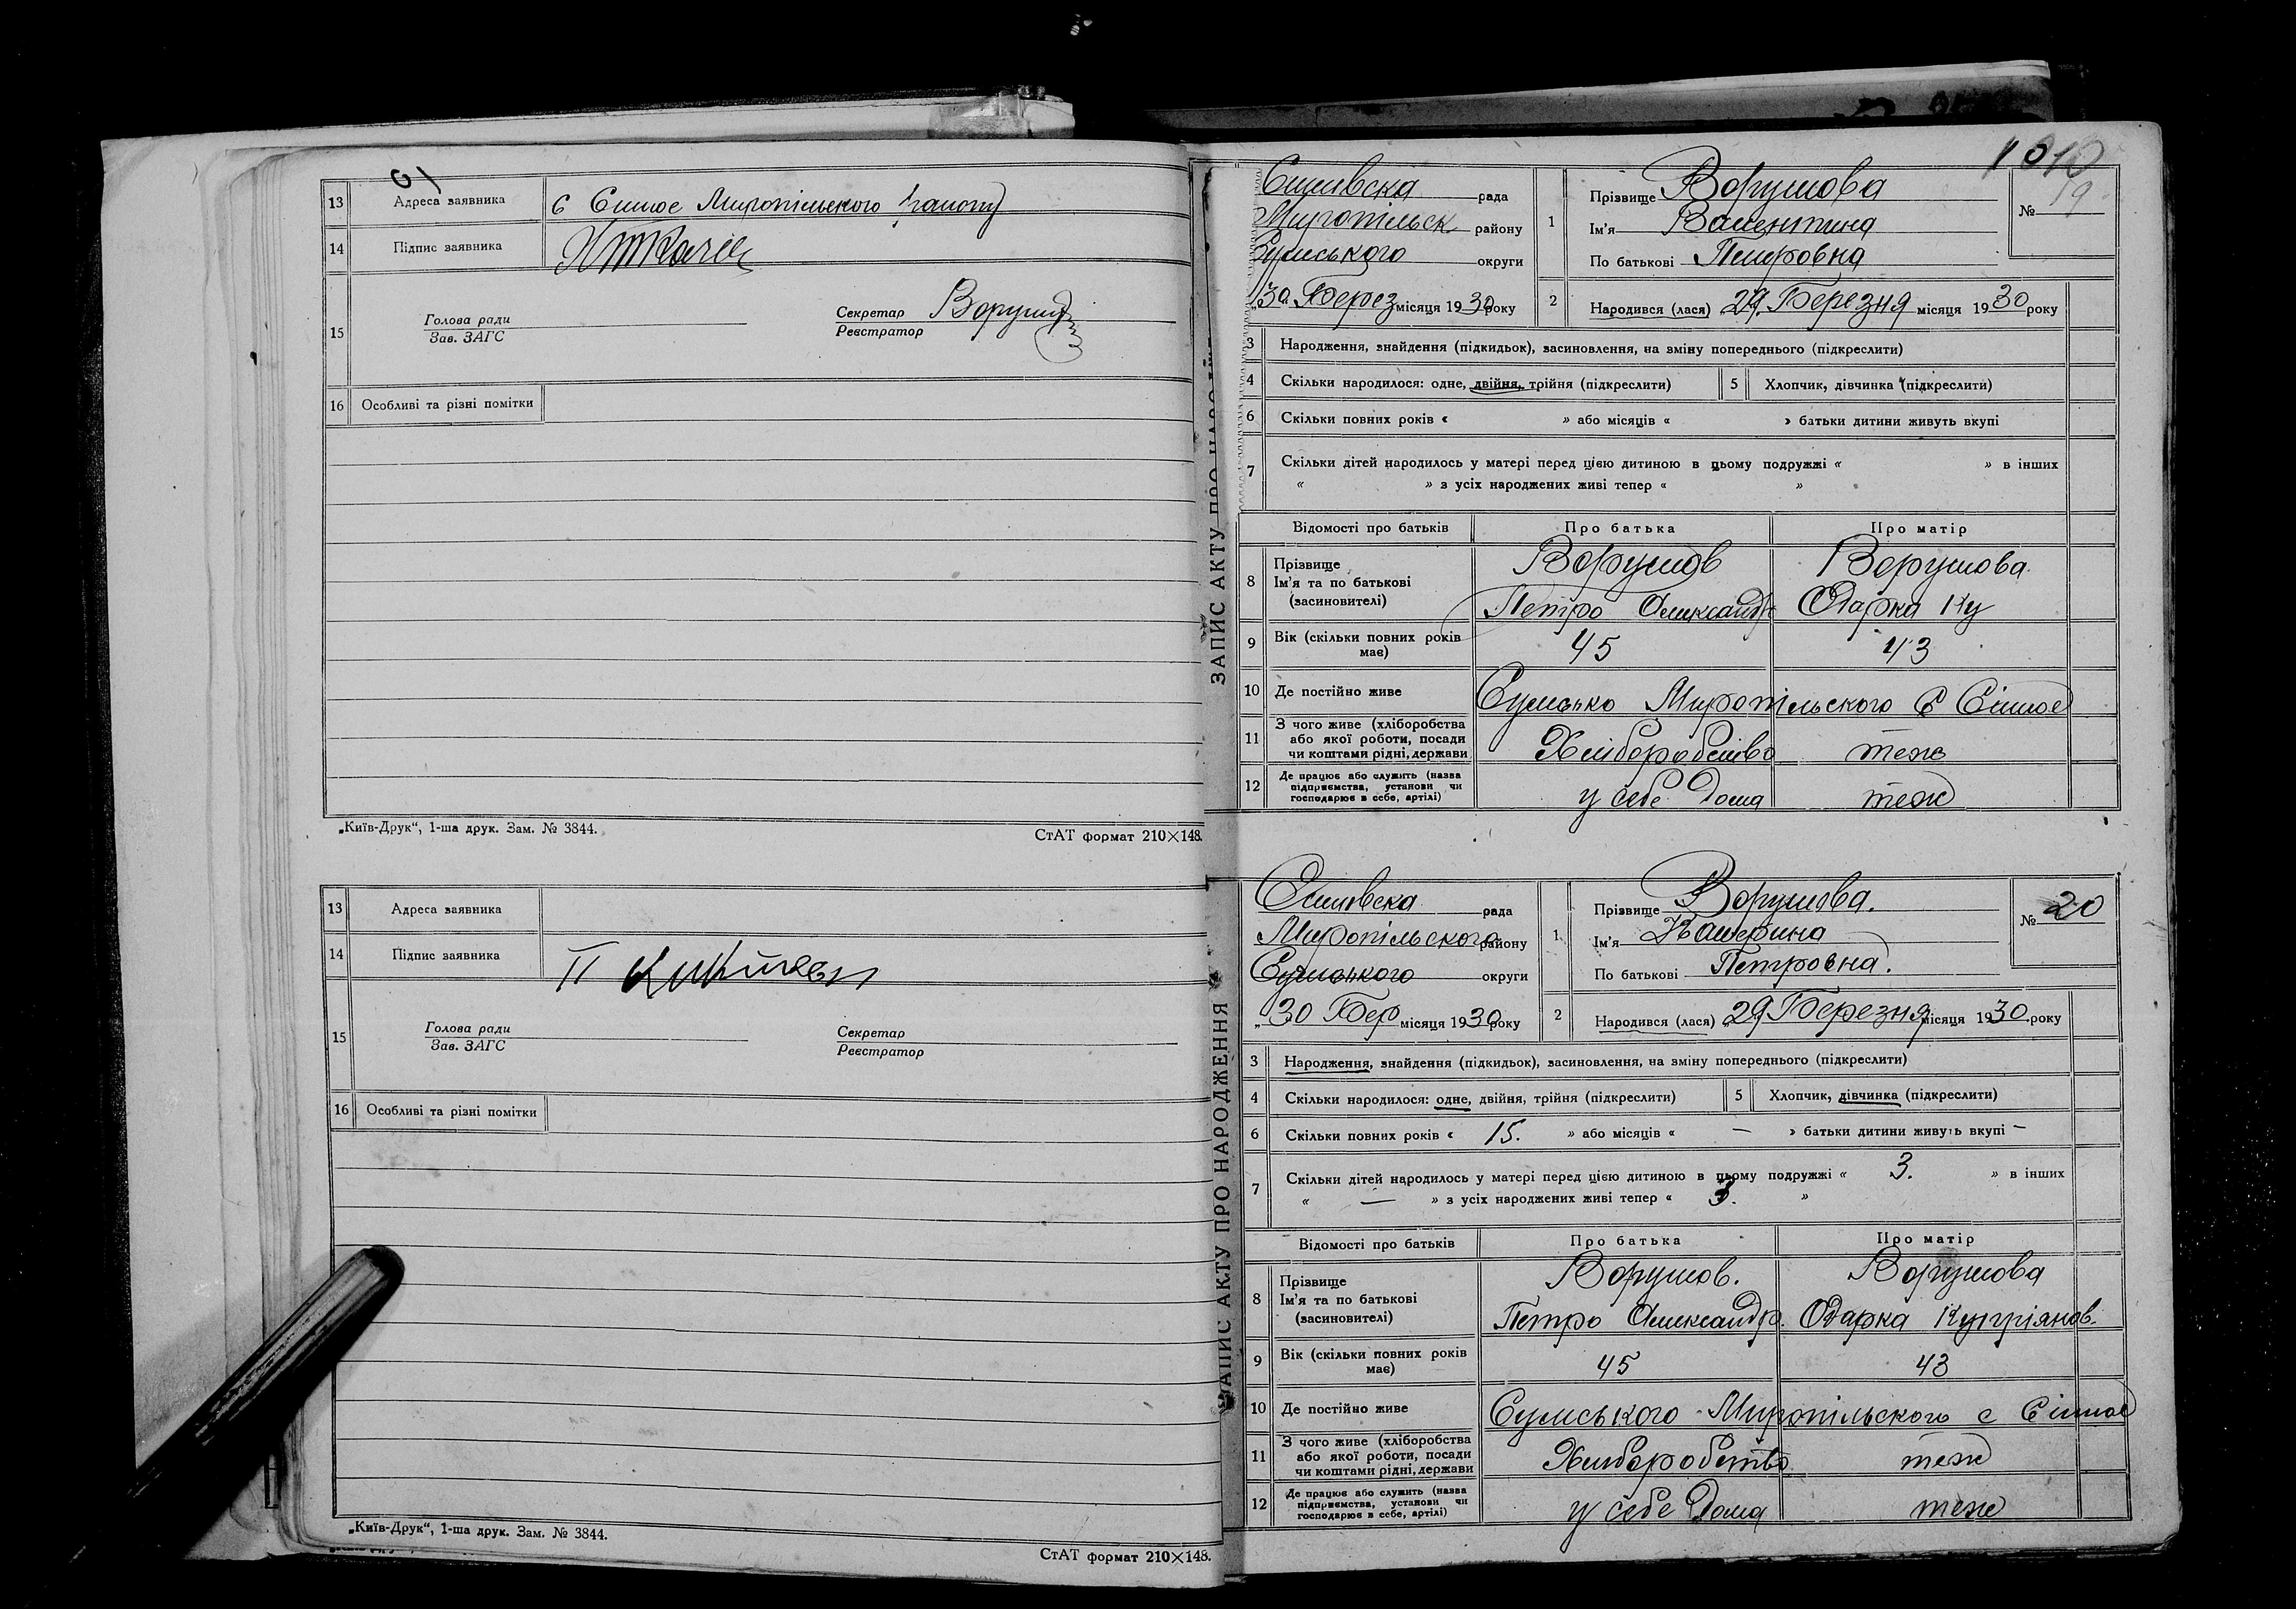 13 Адреса заявника с Миропільського
14 Підпис заявника
15 Голова ради
Зав. ЗАГС
Секретар
Реєстратор
16 Особливі та різні помітки
„Київ-Друк“, 1-ша друк. Зам. № 3844.
СтАТ формат 210×148.
13 Адреса заявника
14 Підпис заявника
15 Голова ради
Зав. ЗАГС
Секретар
Реєстратор
16 Особливі та різні помітки
„Київ-Друк“, 1-ша друк. Зам. № 3844.
СтАТ формат 210×148.
ЗАПИС АКТУ ПРО НАРОДЖЕННЯ
рада
Миропільск району
Сумського округи
30 Берез місяця 1930 року
1 Прізвище Ворушова
Ім'я Валентина
По батькові Петровна
№ 19
2 Народився (лася) 29 Березня місяця 1930 року
3 Народження, знайдення (підкидьок), засиновлення, на зміну попереднього (підкреслити)
4 Скільки народилося: одне, двійня, трійня (підкреслити) 5 Хлопчик, дівчинка (підкреслити)
6 Скільки повних років « » або місяців « » батьки дитини живуть вкупі
7 Скільки дітей народилось у матері перед цією дитиною в цьому подружжі « » в інших
« » з усіх народжених живі тепер « »
Відомості про батьків Про батька Про матір
8 Прізвище
Ім'я та по батькові
(засиновителі)
Ворушов Ворушова
Петро Олександр Одарка Ку
9 Вік (скільки повних років має) 45 43
10 Де постійно живе Сумсько Миропільского с
11 З чого живе (хліборобства
або якої роботи, посади
чи коштами рідні, держави
Хліборобство теж
12 Де працює або служить (назва
підприємства, установи чи
господарює в себе, артілі)
у себе дома теж
ЗАПИС АКТУ ПРО НАРОДЖЕННЯ
рада
Миропільского району
Сумського округи
„30 Бер місяця 1930 року
1 Прізвище Ворушова.
Ім'я Катерина
По батькові Петровна.
№ 20
2 Народився (лася) 29 Березня місяця 1930 року
3 Народження, знайдення (підкидьок), засиновлення, на зміну попереднього (підкреслити)
4 Скільки народилося: одне, двійня, трійня (підкреслити) 5 Хлопчик, дівчинка (підкреслити)
6 Скільки повних років « 15. » або місяців « — » батьки дитини живуть вкупі —
7 Скільки дітей народилось у матері перед цією дитиною в цьому подружжі « 3. » в інших
« — » з усіх народжених живі тепер « 3. »
Відомості про батьків Про батька Про матір
8 Прізвище
Ім'я та по батькові
(засиновителі)
Ворушов. Ворушова
Петро Олександр. Одарка
9 Вік (скільки повних років має) 45 43
10 Де постійно живе Сумського Миропільского с
11 З чого живе (хліборобства
або якої роботи, посади
чи коштами рідні, держави
Хліборобство теж
12 Де працює або служить (назва
підприємства, установи чи
господарює в себе, артілі)
у себе дома теж